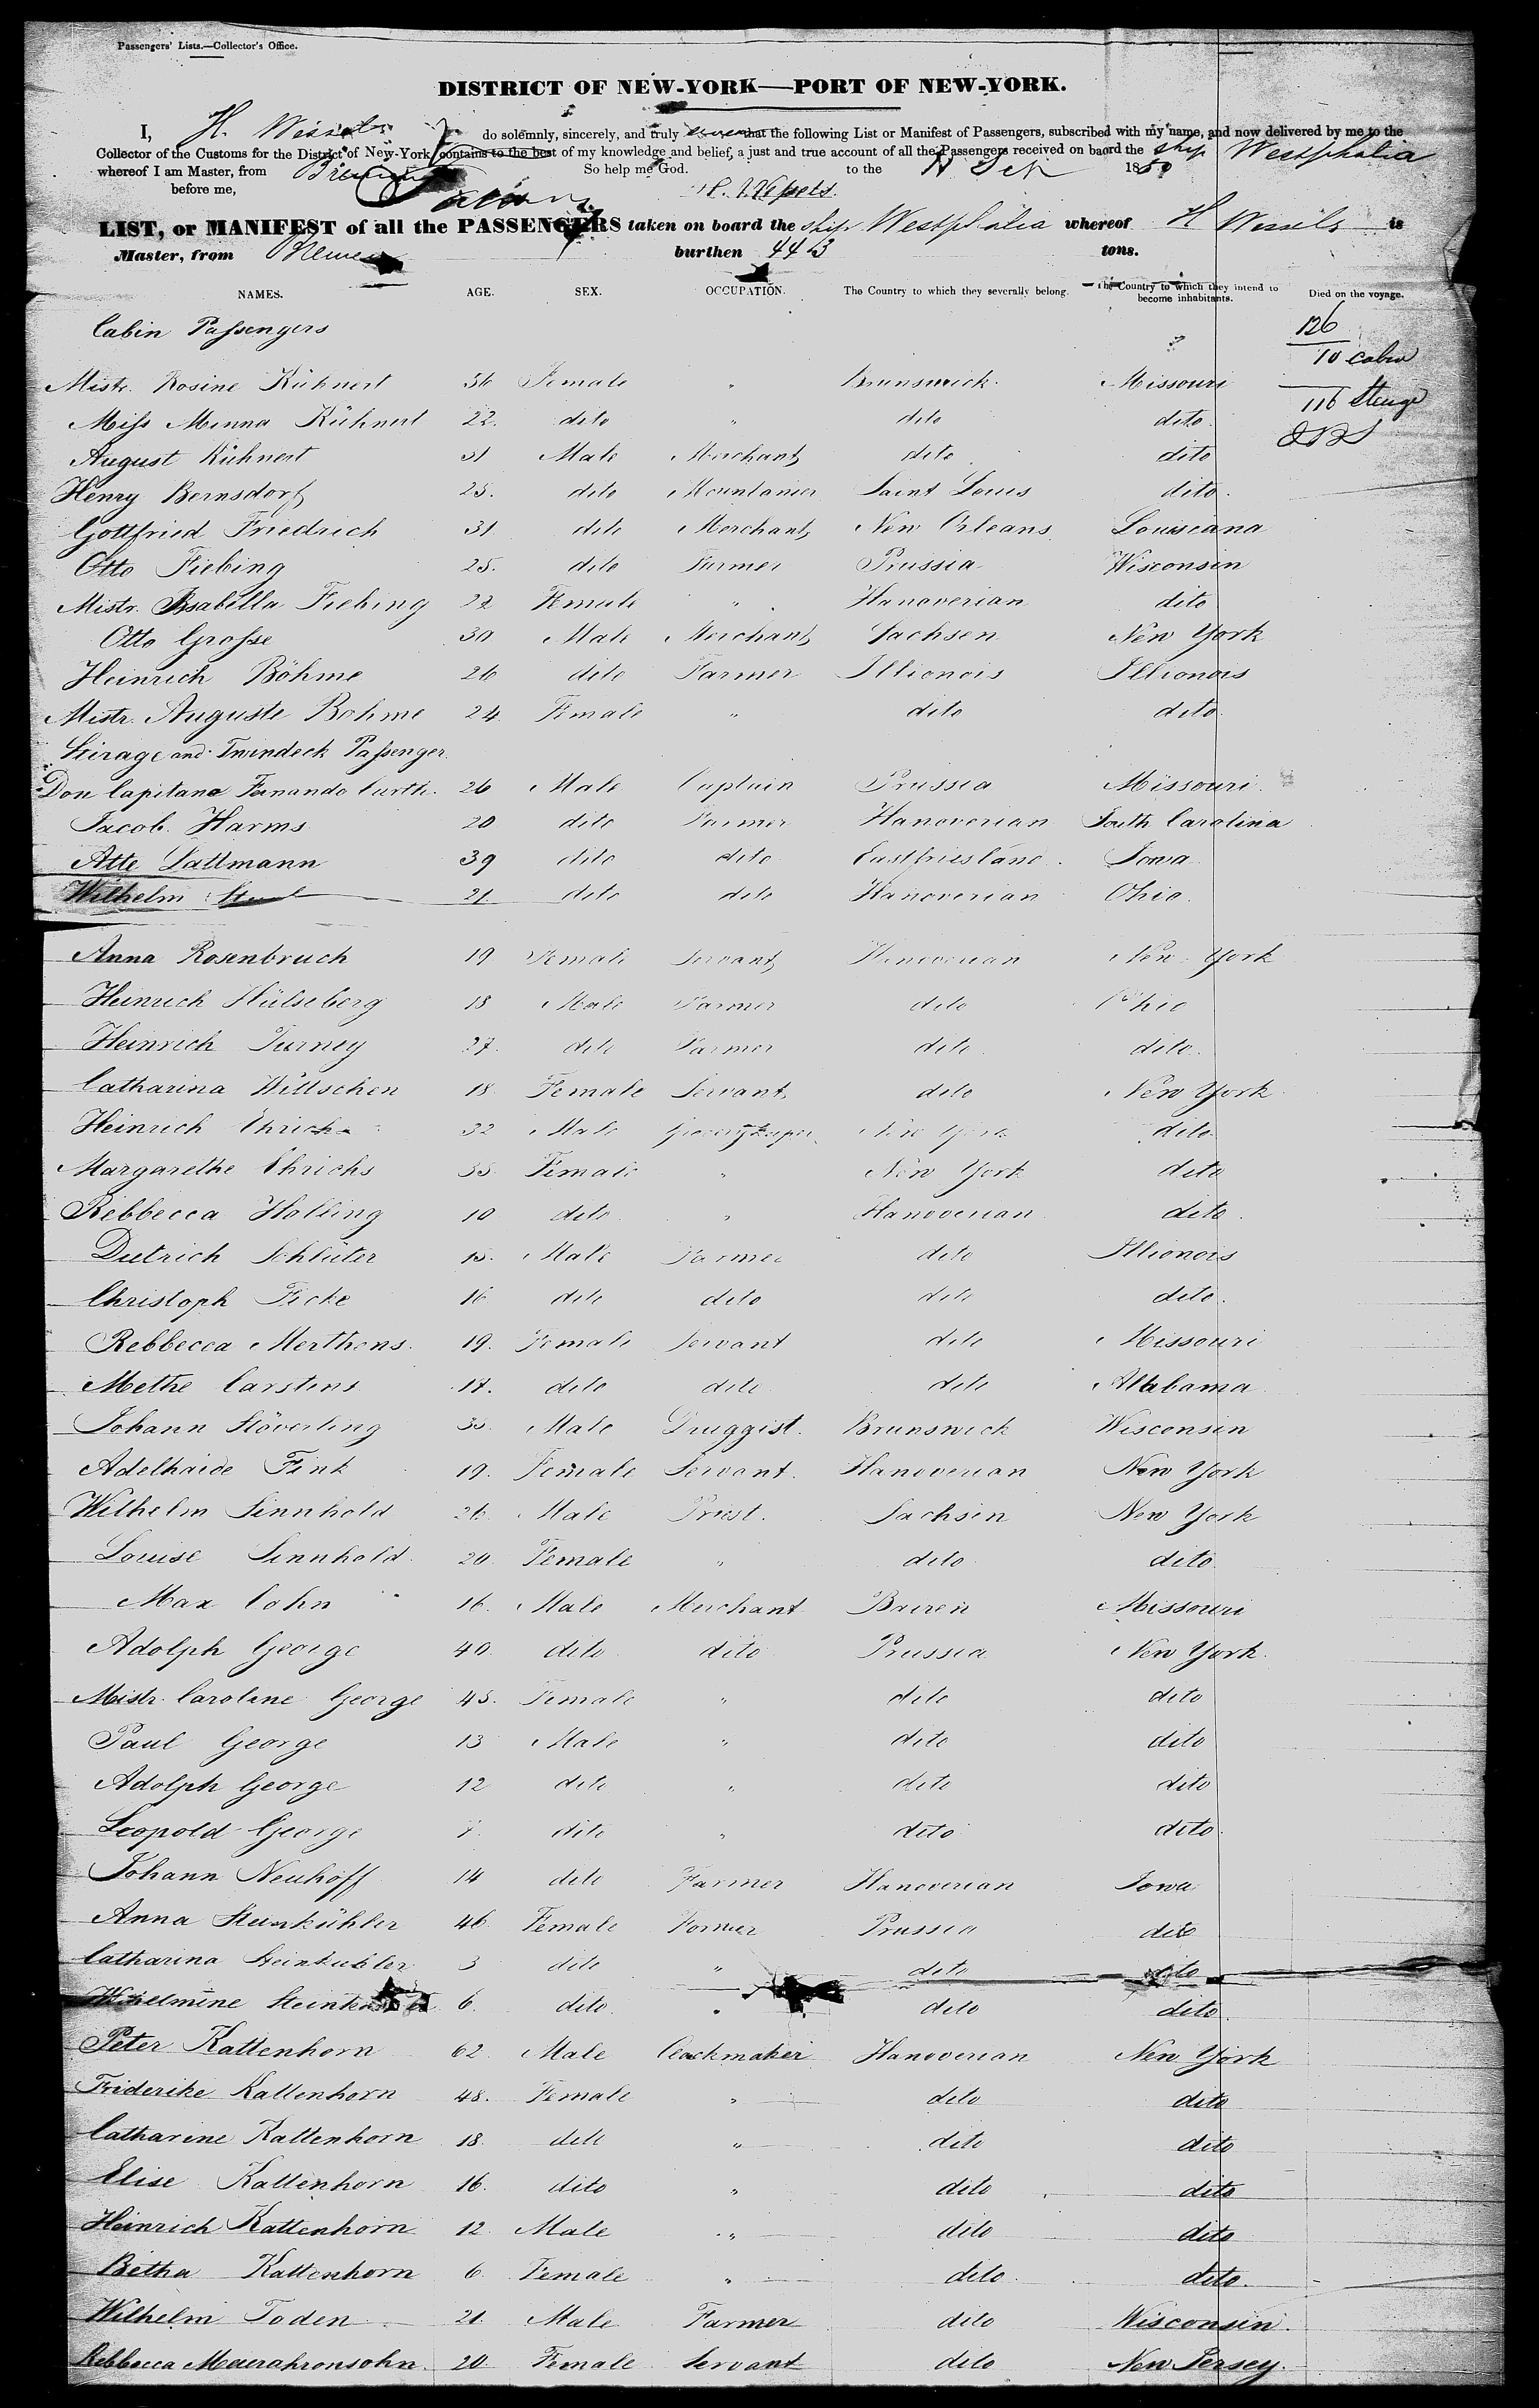 Passengers' Lists.—Collector's Office.
DISTRICT OF NEW-YORK—PORT OF NEW-YORK.
I, H. Wessels do solemnly, sincerely, and truly that the following List or Manifest of Passengers, subscribed with my name, and now delivered by me to the
Collector of the Customs for the District of New-York, contains to the best of my knowledge and belief, a just and true account of all the Passengers received on baord the ship Westphalia
whereof I am Master, from Bremen So help me God. to the 1850
before me, H. Wessels
LIST, or MANIFEST of all the PASSENGERS taken on board the ship Westphalia whereof H Wessels is
Master, from Bremen burthen tons.
NAMES. AGE. SEX. OCCUPATION. The Country to which they severally belong. The Country to which they intend to become inhabitants. Died on the voyage.
Cabin Passengers 126
10 cabin
Mistr. Rosine Kühnert 36 Female " Brunswick. Missouri
116 Steuge
Miss Minna Kühnert 22. dito " dito dito.
August Kühnert 31 Male Merchant dito dito
Henry Bernsdorf 25. dito Mountanier Saint Louis dito.
Gottfried Friedrich 31. dito Merchant New Orleans Louiseana
Otto Fiebing 25. dito Farmer Prussia Wisconsin
Mistr. Isabella Fiebing 22 Female " Hanoverian dito
Otto Grosse 30 Male Merchant Sachsen New York
Heinrich Böhme 26 dito Farmer Illionois Illionois
Mistr. Auguste Bohme 24. Female " dito dito.
Steirage and Twindeck Passenger.
Don Capitano Fernando Curth. 26 Male Captain Prussia Missouri.
Jacob. Harms 20 dito Farmer Hanoverian South Carolina
Atte Sattmann 39 dito dito Eastfriesland. Iowa
Wilhelm 21 dito dito Hanoverian Ohio.
Anna Rosenbruch 19 Female Servant Hanoverian New York
Heinrich Hülseberg 18 Male Farmer dito Ohio
Heinrich Turney 27. dito Farmer dito. dito.
Catharina Wittschen 18. Female Servant dito New York
Heinrich Ehrichs 32 Male Grocerykeeper New York dito.
Margarethe Ehrichs 35. Female " New York dito
Rebbecca Holling 10 dito " Hanoverian dito.
Dietrich Schlüter 15. Male Farmer dito Illionois
Christoph Ficke 16 dito dito dito dito.
Rebbecca Merthens. 19. Female Servant dito Missouri
Methe Carstens 17. dito dito dito Allabama
Johann Stöverling 35. Male Druggist. Brunswick Wisconsin
Adelhaide Fink 19. Female Servant. Hanoverian New York
Wilhelm Sinnhold 26. Male Priest. Sachsen New York
Louise Sinnhold. 20. Female " dito dito.
Max Cohn 16. Male Merchant Baiern Missouri
Adolph George 40. dito dito Prussia New York.
Mistr. Caroline George 45. Female " dito dito
Paul George 13 Male " dito dito
Adolph George 12 dito " dito dito
Leopold George 7. dito " dito dito.
Johann Neuhoff 14 dito Farmer Hanoverian Iowa
Anna Steinkühler 46. Female Farmer Prussia dito
Catharina Steinkühler 3 dito " dito dito
Wilhelmine Steinkühler 6. dito. " dito dito.
Peter Kattenhorn 62. Male Cloackmaker Hanoverian New York
Friderike Kattenhorn 48. Female " dito dito
Catharine Kattenhorn 18. dito " dito dito
Elise Kattenhorn 16. dito " dito dito
Heinrich Kattenhorn 12. Male " dito dito
Betha Kattenhorn 6. Female " dito. dito.
Wilhelm Toden 21. Male Farmer dito Wisconsin.
Rebbecca Maerahronsohn. 20. Female Servant dito New Jersey.